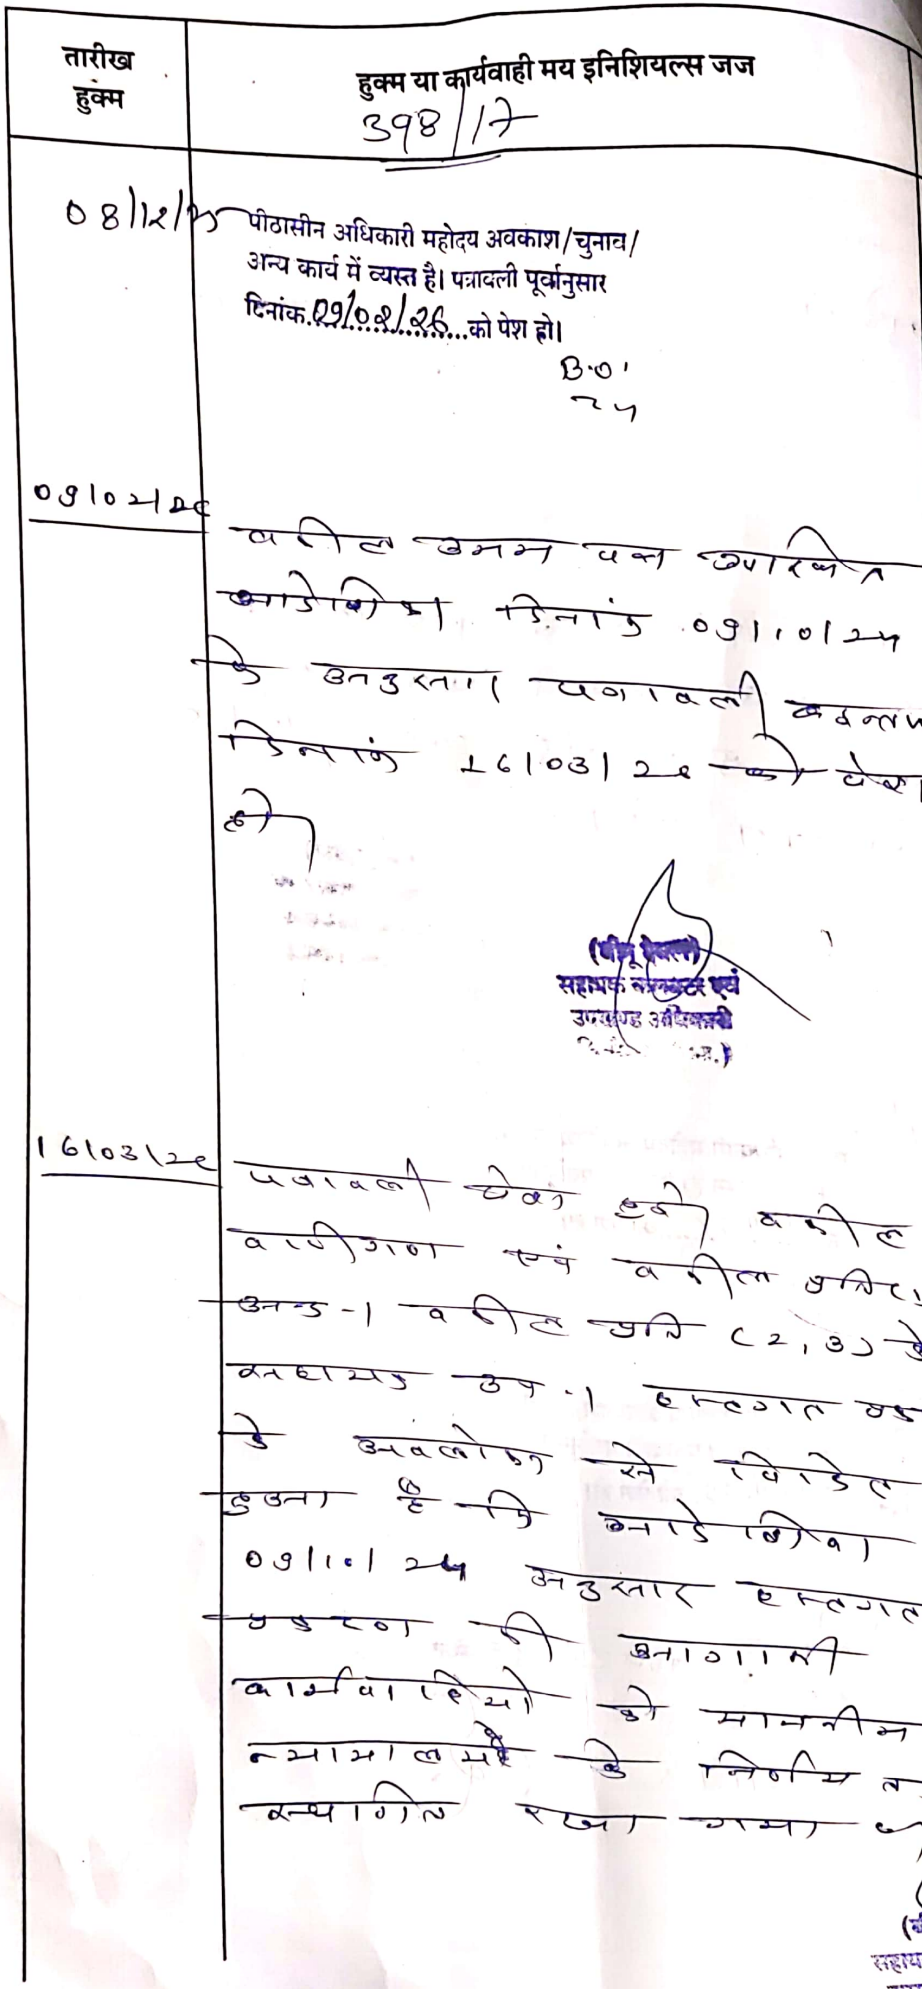 तारीख
हुक्म
हुक्म या कार्यवाही मय इनिशियल्स जज
398/17
08/12/25
पीठासीन अधिकारी महोदय अवकाश/चुनाव/
अन्य कार्य में व्यस्त है। पत्रावली पूर्वानुसार
दिनांक 09/02/26 को पेश हो।
B.O.
09/02/26
वकील उभय पक्ष उपस्थित
आदेशिका दिनांक 09/10/24
के अनुसार पत्रावली
दिनांक 16/03/26 को पेश
हो
सहायक कलक्टर एवं
उपखण्ड अधिकारी
16/03/26
पत्रावली पेश हुई वकील
वादीगण एवं वकील प्रति.
वकील प्रति (2,3) के
हस्तगत
के अवलोकन से विदित
हुआ है कि आदेशिका
09/10/24 अनुसार हस्तगत
प्रकरण की आगामी
कार्यवाहियो को माननीय
न्यायालय के निर्णय त
स्थगित रखा गया
सहाय